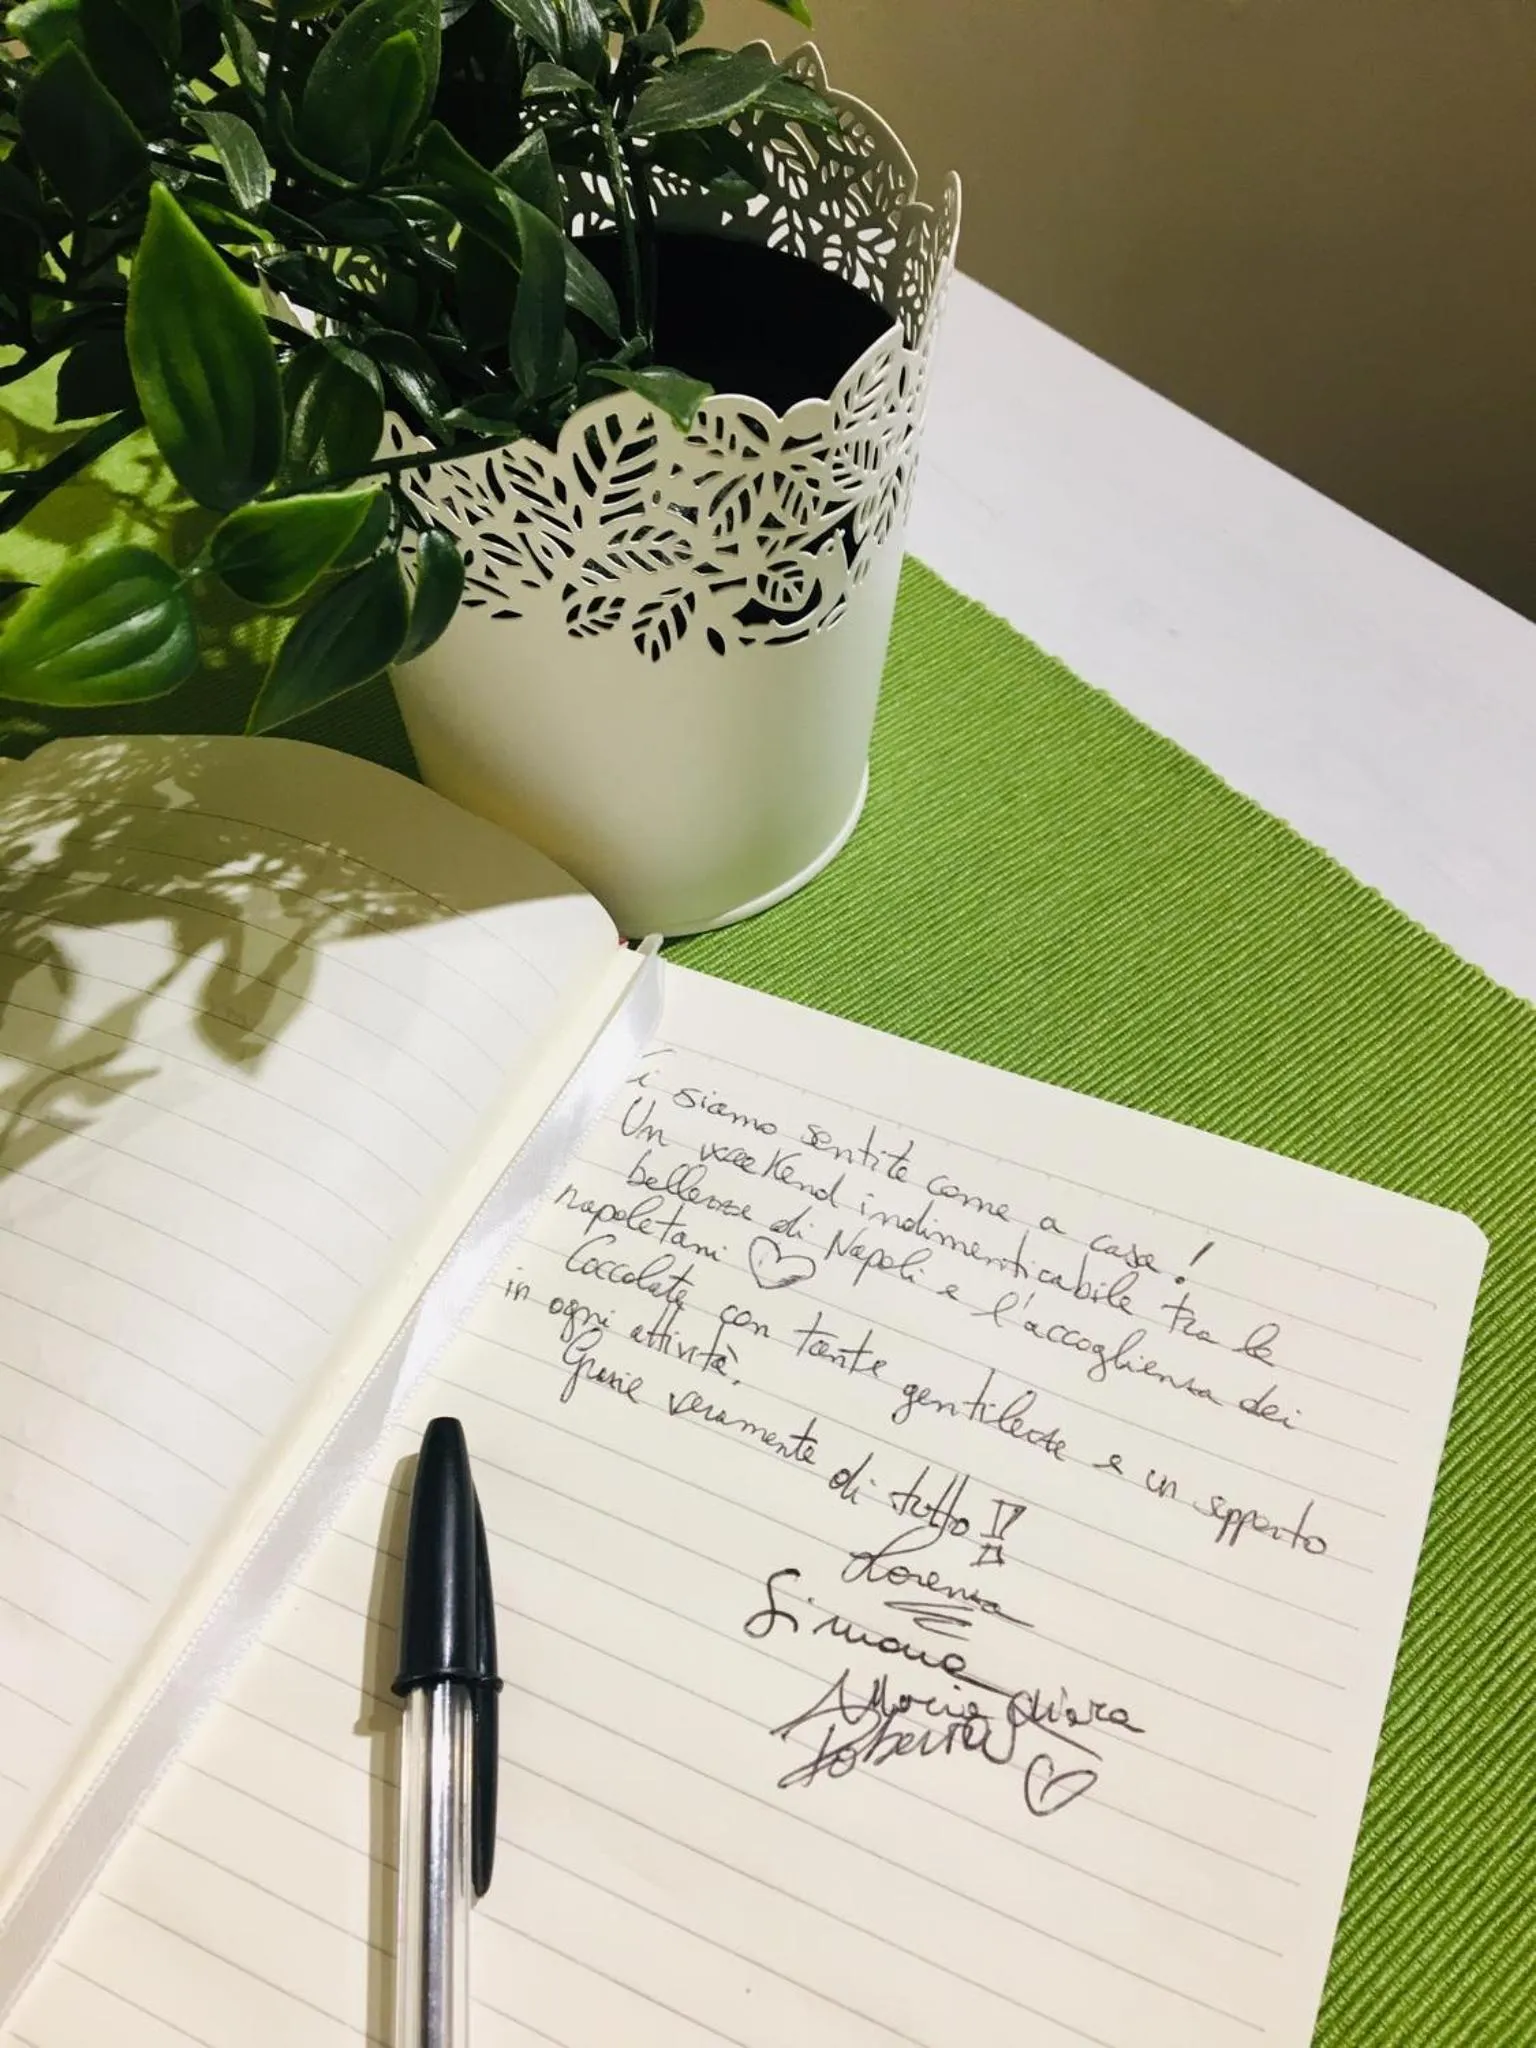 Ci siamo sentite come a casa!
Un weekend indimenticabile tra le
bellezze di Napoli e l'accoglienza dei
napoletani ♡
Coccolate con tante gentilezze e un supporto
in ogni attività.
Grazie veramente di tutto !!
Lorenza
Simona
Maria Chiara
Roberta ♡